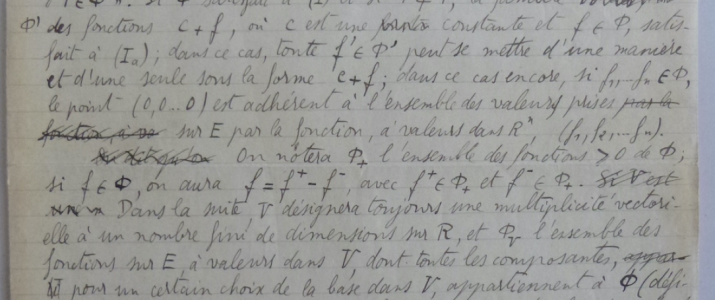 Φ' des fonctions c+f, où c est une constante et f ∈ Φ, satis-
fait à (I_a); dans ce cas, toute f' ∈ Φ' peut se mettre d'une manière
et d'une seule sous la forme c+f; dans ce cas encore, si f₁,…fₙ ∈ Φ,
le point (0,0…0) est adhérent à l'ensemble des valeurs prises par la
sur E par la fonction, à valeurs dans Rⁿ, (f₁,f₂,…fₙ).
On notera Φ₊ l'ensemble des fonctions ⩾0 de Φ;
si f ∈ Φ, on aura f = f⁺ - f⁻, avec f⁺ ∈ Φ₊ et f⁻ ∈ Φ₊. Si V est
Dans la suite, V désignera toujours une multiplicité vectori-
elle à un nombre fini de dimensions sur R, et Φ_V l'ensemble des
fonctions sur E, à valeurs dans V, dont toutes les composantes,
pour un certain choix de la base dans V, appartiennent à Φ (défi-